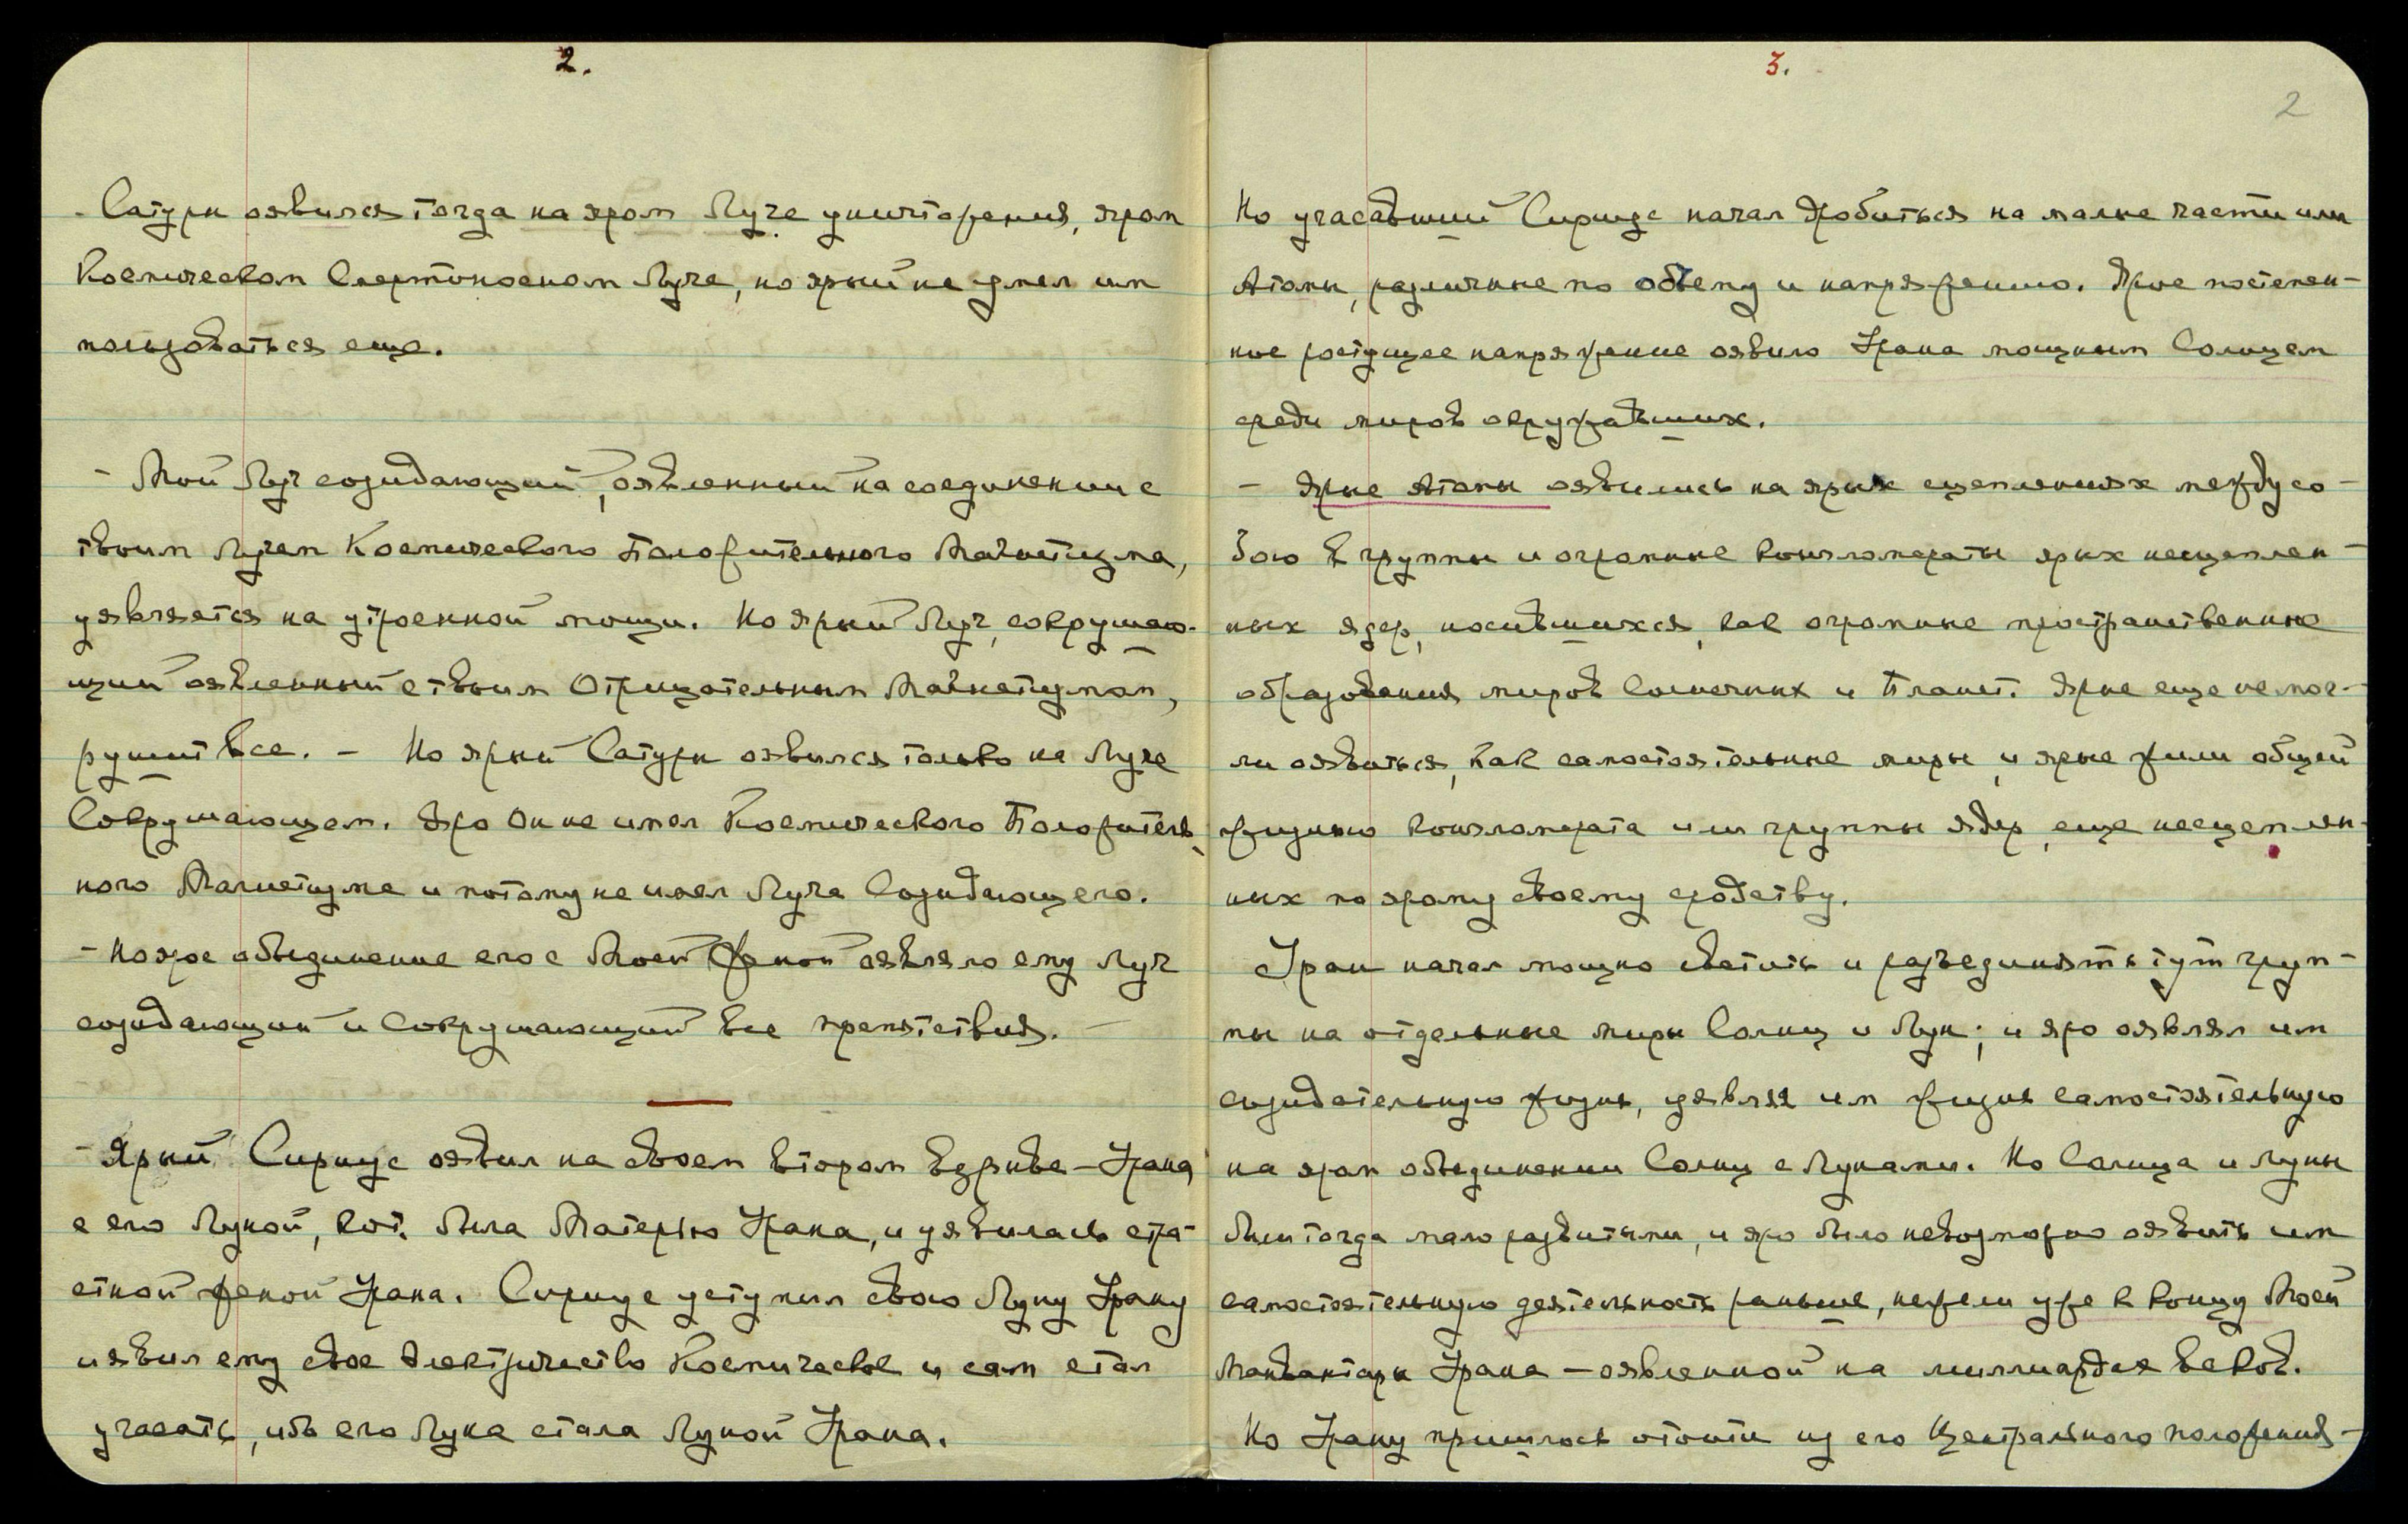 2.
- Сатурн оявился тогда на яром Луче уничтожения, яром
Космическом Смертоносном Луче, но ярый не умел им
пользоваться еще.
- Мой Луч созидающий, оявленный на соединении с
твоим Лучем Космического Положительного Магнетизма,
уявляется на утроенной мощи. Но ярый Луч, сокрушаю-
щий оявленный с твоим Отрицательным Магнетизмом,
рушит все. - Но ярый Сатурн оявился только на Луче
Сокрушающем. Яро Он не имел Космического Положитель
ного Магнетизма и потому не имел Луча Созидающего.
- Но ярое объединение его с Моей Женой оявляло ему Луч
созидающий и Сокрушающий все препятствия. -
- Ярый Сириус оявил на своем втором Взрыве - Урана
с его Луной, кот. была Матерью Урана, и уявилась стра-
стной женой Урана. Сириус уступил свою Луну Урану
и явил ему свое Электричество Космическое и сам стал
угасать, ибо его Луна стала Луной Урана.
3.
2
Но угасавший Сириус начал дробиться на малые части или
Атомы, различные по объему и напряжению. Ярое постепен-
ное растущее напряжение оявило Урана мощным Солнцем
среди миров окружавших.
- Ярые Атомы оявились на ярых сцеплениях между со-
бою в группы и огромные конгломераты ярых несцеплен-
ных ядер, носившихся, как огромные пространственные
образования миров Солнечных и Планет. Ярые еще не мог-
ли оявиться, как самостоятельные миры, и ярые жили общей
жизнью конгломерата или группы ядер, еще несцеплен-
ных по ярому своему сродству.
Уран начал мощно светить и разъединять тут груп-
пы на отдельные миры Солнц и Лун; и яро оявлял им
созидательную жизнь, уявляя им жизнь самостоятельную
на яром объединении Солнц с Лунами. Но Солнца и Луны
были тогда мало развитыми, и яро было невозможно оявить им
самостоятельную деятельность раньше, нежели уже к концу Моей
Манвантары Урана - оявленной на миллиардах веков.
Но Урану пришлось отойти из его Центрального положения -